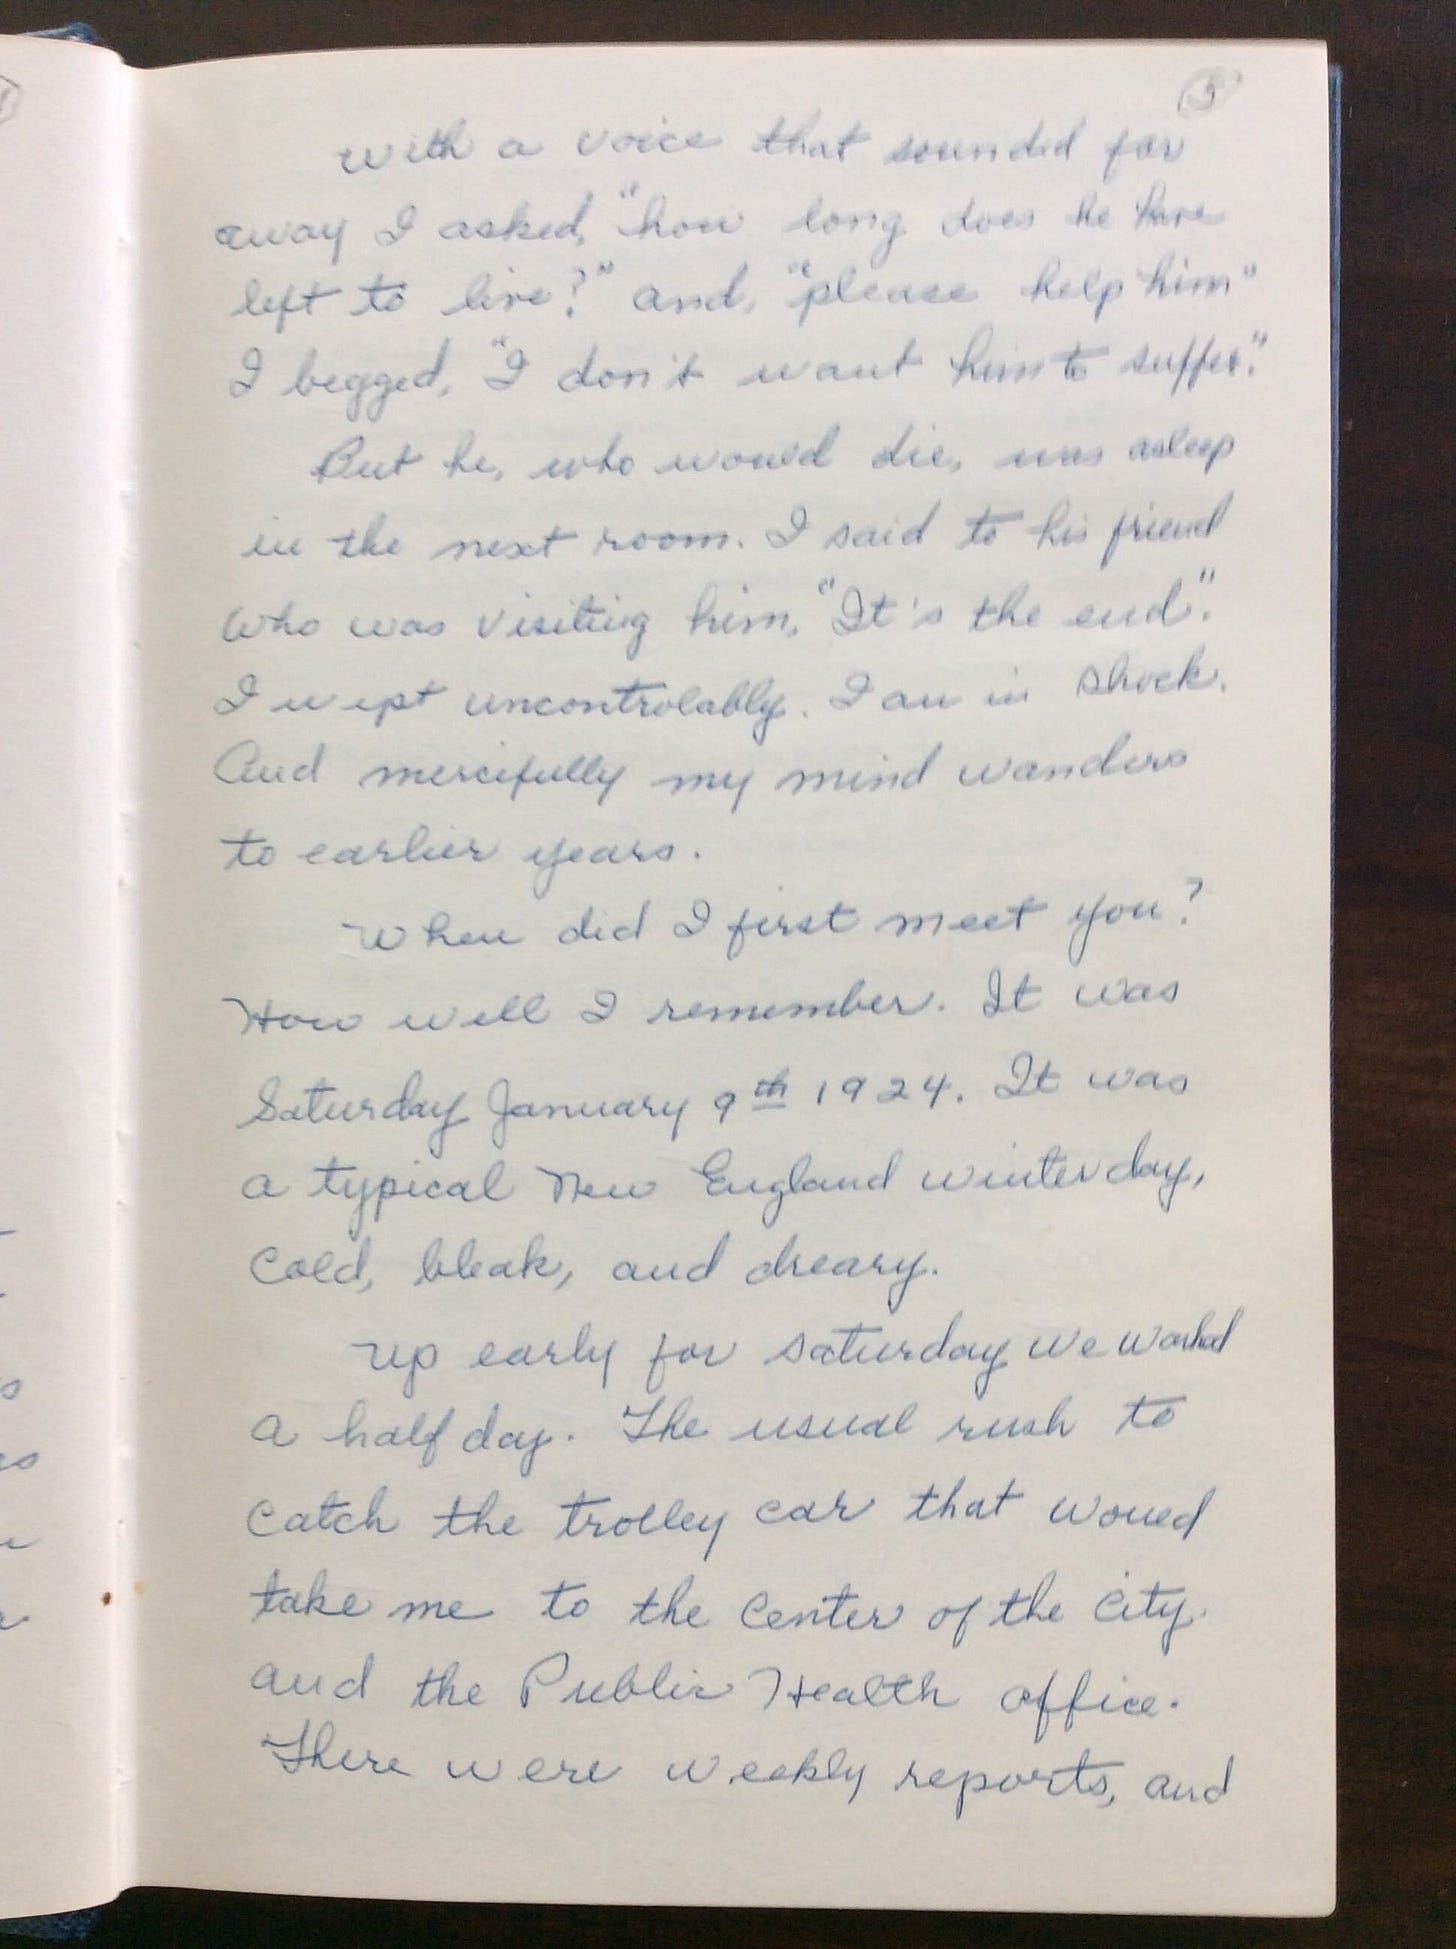 5
With a voice that sounded far
away I asked, "how long does he have
left to live?" and, "please help him"
I begged, "I don't want him to suffer."
But he, who would die, was asleep
in the next room. I said to his friend
who was visiting him, "It's the end".
I wept uncontrolably. I am in shock.
And mercifully my mind wanders
to earlier years.
When did I first meet you?
How well I remember. It was
Saturday January 9th 1924. It was
a typical New England winter day,
cold, bleak, and dreary.
Up early for Saturday we worked
a half day. The usual rush to
catch the trolley car that would
take me to the center of the city.
and the Public Health office.
There were weekly reports, and